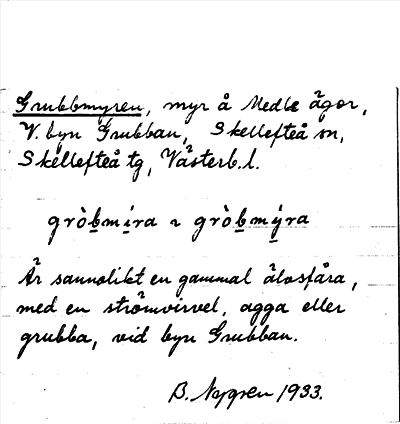 Grubbmyren, myr å Medle ägor,
V. byn Grubban, Skellefteå sn,
Skellefteå tg, Västerb. l.
gròbmira ~ gròbmýra
Är sannolikt en gammal älvsfåra,
med en strömvirvel, agga eller
grubba, vid byn Grubban.
B. Nygren 1933.